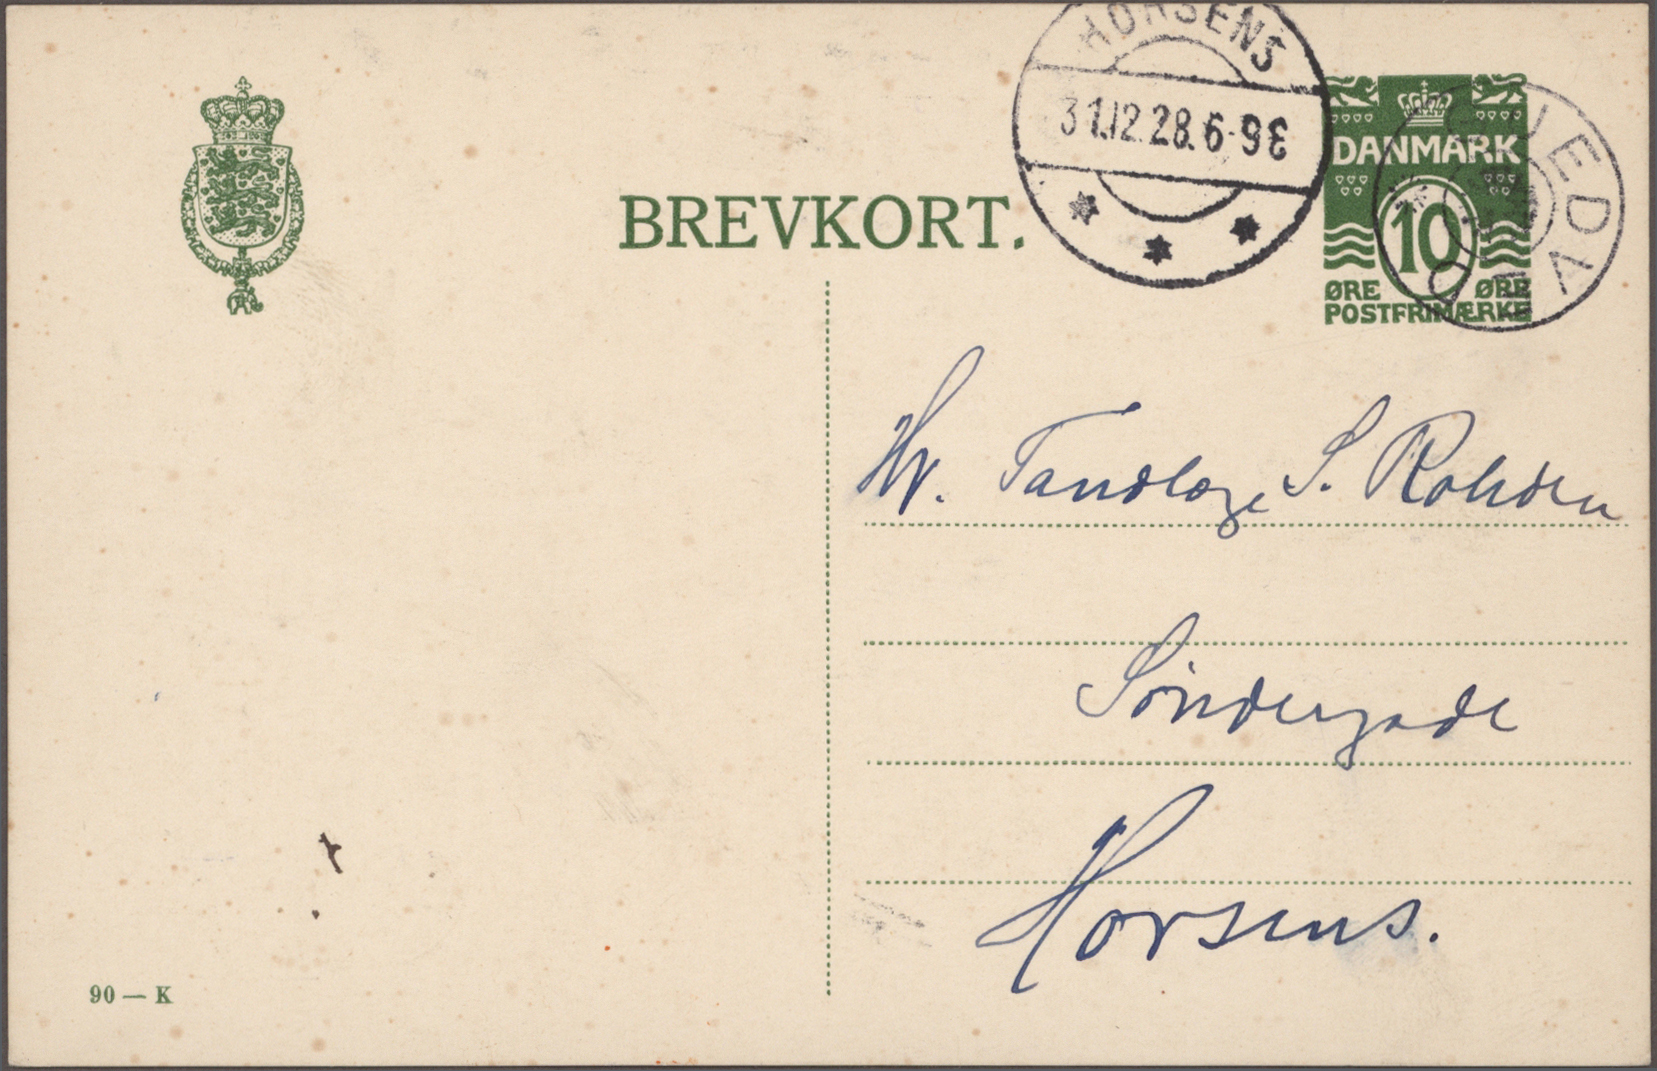 HORSENS
31.12.28. 6-9 E
BREVKORT.
DANMARK
10
ØRE ØRE
POSTFRIMÆRKE
Hr. Tandlæge S. Rohden
Søndergade
Horsens.
90 — K